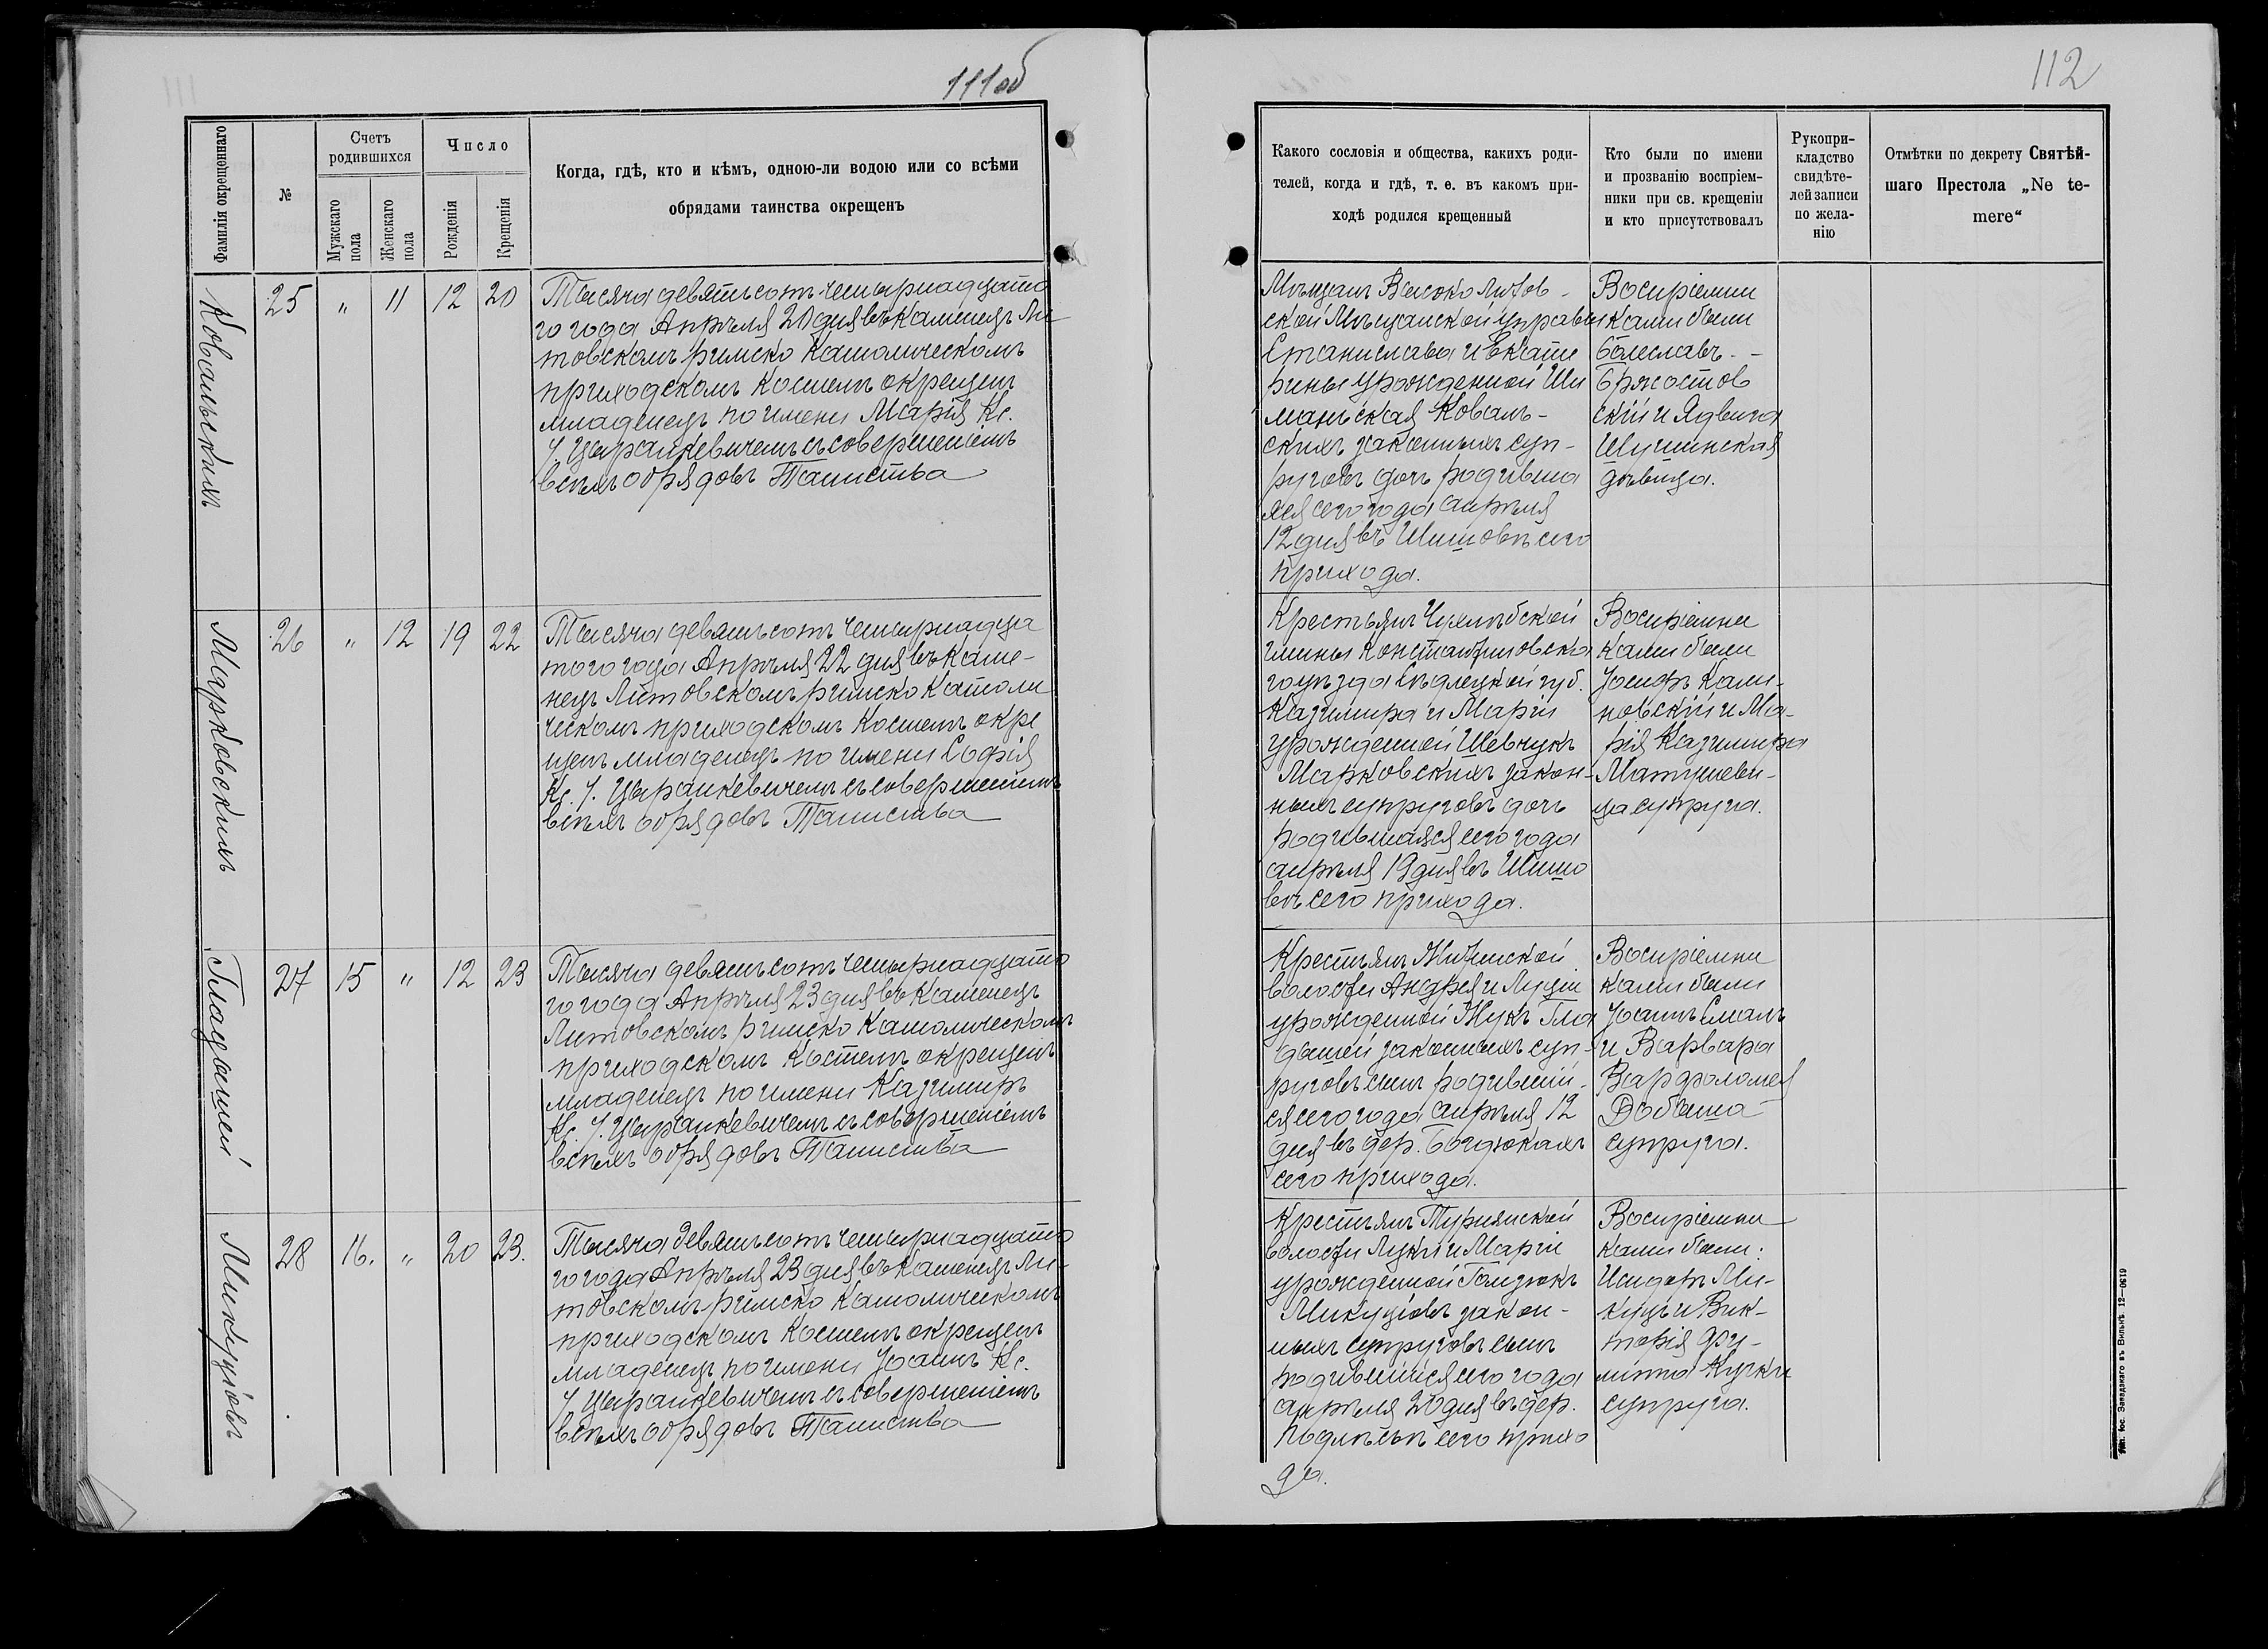 111об
Фамилія окрещеннаго
№
Счетъ
родившихся
Мужскаго
пола
Женскаго
пола
Число
Рожденія
Крещенія
Когда, гдѣ, кто и кѣмъ, одною-ли водою или со всѣми
обрядами таинства окрещенъ
Ковальскихъ
25 " 11 12 20
Тысяча девятьсотъ четырнадцато
го года Апрѣля 20 дня въ Каменецъ Ли
товскомъ римско католическомъ
приходскомъ костелѣ окрещенъ
младенецъ по имени Марія Кс.
І. Цыранкевичемъ съ совершеніемъ
всѣхъ обрядовъ Таинства
Марковскихъ
26 " 12 19 22
Тысяча девятьсотъ четырнадца
того года Апрѣля 22 дня въ Каме-
нецъ Литовскомъ римско католи
ческомъ приходскомъ костелѣ окре
щенъ младенецъ по имени Софія
Кс. І. Цыранкевичемъ съ совершеніемъ
всѣхъ обрядовъ Таинства
Гладышей
27 15 " 12 23
Тысяча девятьсотъ четырнадцато
го года Апрѣля 23 дня въ Каменецъ
Литовскомъ римско католическомъ
приходскомъ костелѣ окрещенъ
младенецъ по имени Казимиръ
Кс. І. Цыранкевичемъ съ совершеніемъ
всѣхъ обрядовъ Таинства
Микуціовъ
28 16. " 20 23.
Тысяча девятьсотъ четырнадцато
го года Апрѣля 23 дня въ Каменецъ Ли-
товскомъ римско католическомъ
приходскомъ костелѣ окрещенъ
младенецъ по имени Іоаннъ Кс.
І. Цыранкевичемъ съ совершеніемъ
всѣхъ обрядовъ Таинства
112
Какого сословія и общества, какихъ роди-
телей, когда и гдѣ, т. е. въ какомъ при-
ходѣ родился крещенный
Кто были по имени
и прозванію воспріем-
ники при св. крещеніи
и кто присутствовалъ
Рукопри-
кладство
свидѣте-
лей записи
по жела-
нію
Отмѣтки по декрету Святѣй-
шаго Престола „Ne te-
mere“
Мѣщанъ Высоко Литов-
ской Мѣщанской управы
Станислава и Екате
рины урожденной Ши
манъская Коваль-
скихъ законныхъ суп-
руговъ дочь родивша
яся сего года апрѣля
12 дня въ Шишовѣ сего
прихода.
Воспріемни
ками были
Болеславъ -
Бржостов
скій и Ядвига
Шушинская
дѣвица.
Крестьянъ
гмины Константиновска
го уѣзда Сѣдлецкой губ.
Казимира и Маріи
урожденной Шевчукъ
Марковскихъ закон-
ныхъ супруговъ дочь
родившаяся сего года
апрѣля 19 дня въ Шишо
вѣ сего прихода.
Воспріемни
ками были
Іосифъ Кали-
новскій и Ма-
рія Казимира
Матушеви-
ца супруга.
Крестьянъ
волости Андрея и Луціи
урожденной Жукъ Гла
дышей законныхъ суп-
руговъ сынъ родивший-
ся сего года апрѣля 12
дня въ дер. Богдюкахъ
сего прихода.
Воспріемни
ками были
Іоаннъ Смаль
и Варвара
Варфоломея
Добыша
супруга.
Крестьянъ Турнянской
волости Луки и Маріи
урожденной Гомзюкъ
Микуціовъ закон-
ныхъ супруговъ сынъ
родившійся сего года
апрѣля 20 дня въ дер.
Подлѣсьѣ сего прихо
да.
Воспріемни
ками были:
Исидоръ Ми-
куць и Вик-
торія
Кучки
супруга.
Тип. Іос. Завадзкаго въ Вильнѣ. 12—0619